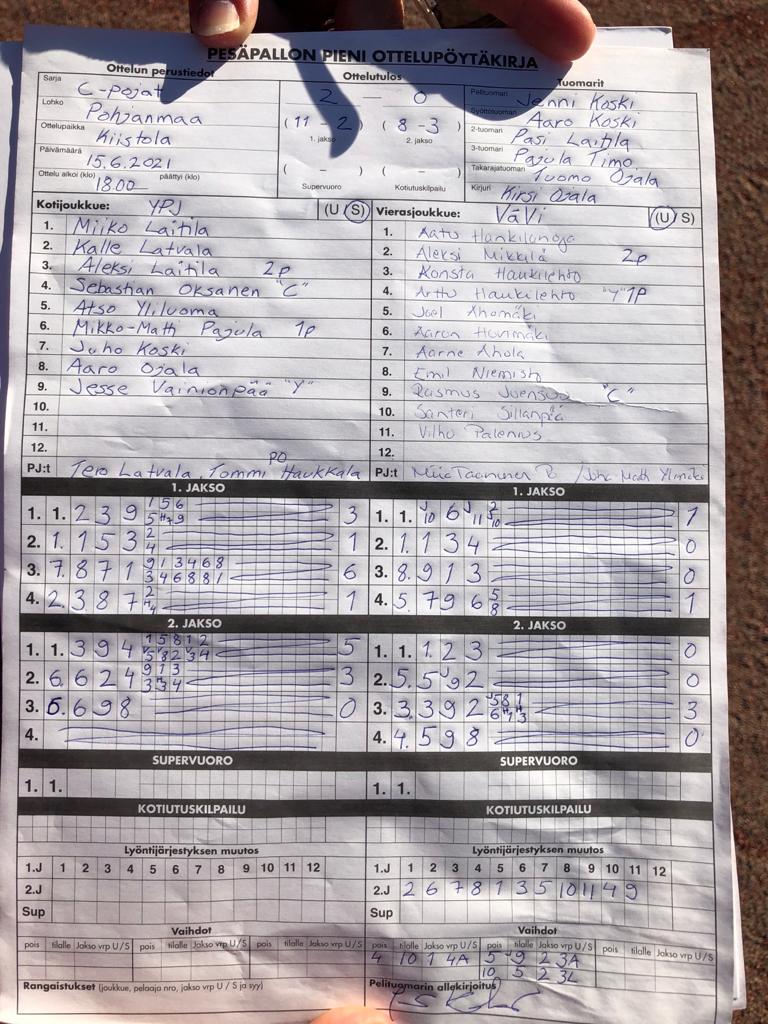 PESÄPALLON PIENI OTTELUPÖYTÄKIRJA
Ottelun perustiedot
Sarja C-pojat
Lohko Pohjanmaa
Ottelupaikka Kiistola
Päivämäärä 15.6.2021
Ottelu alkoi (klo) 18.00 päättyi (klo)
Ottelutulos
2 — 0
( 11 - 2 ) ( 8 - 3 )
1. jakso 2. jakso
( - ) ( - )
Supervuoro Kotiutuskilpailu
Tuomarit
Pelituomari Jenni Koski
Syöttötuomari Aaro Koski
2-tuomari Pasi Laitila
3-tuomari Pajula Timo
Takarajatuomari Tuomo Ojala
Kirjuri Kirsi Ojala
Kotijoukkue: YPJ (U S)
1. Miiko Laitila
2. Kalle Latvala
3. Aleksi Laitila 2p
4. Sebastian Oksanen "C"
5. Atso Yliluoma
6. Mikko-Matti Pajula 1p
7. Juho Koski
8. Aaro Ojala
9. Jesse Vainionpää "Y"
10.
11.
12.
PJ:t Tero Latvala, Tommi Haukkala PO
Vierasjoukkue: VäVi (U S)
1. Aatu
2. Aleksi Mikkilä 2p
3. Konsta Haukilehto
4. Arttu Haukilehto "Y" 1P
5. Joel Ahomäki
6. Aaron
7. Aarne Ahola
8. Emil Niemistö
9. Rasmus Joensuu "C"
10. Santeri Sillanpää
11. Vilho Palenius
12.
PJ:t
1. JAKSO
1. 1. 2 3 9 1 5 6 3
2. 1. 1 5 3 2 4 1
3. 7. 8 7 1 9 1 3 4 6 8 3 4 6 8 8 1 6
4. 2. 3 8 7 2 1
1. JAKSO
1. 1. 10 6 11 1
2. 1. 1 3 4 0
3. 8. 9 1 3 0
4. 5. 7 9 6 5 8 1
2. JAKSO
1. 1. 3 9 4 1 5 8 1 2 5
2. 6. 6 2 4 9 1 3 3 3 4 3
3. 6. 6 9 8 0
4.
2. JAKSO
1. 1. 1 2 3 0
2. 5. 5 9 2 0
3. 3. 3 9 2 5 8 1 3
4. 4. 5 9 8 0
SUPERVUORO
1. 1.
SUPERVUORO
1. 1.
KOTIUTUSKILPAILU
KOTIUTUSKILPAILU
Lyöntijärjestyksen muutos
1.J 1 2 3 4 5 6 7 8 9 10 11 12
2.J
Sup
Lyöntijärjestyksen muutos
1.J 1 2 3 4 5 6 7 8 9 10 11 12
2.J 2 6 7 8 1 3 5 10 11 4 9
Sup
Vaihdot
pois tilalle Jakso vrp U/S pois tilalle Jakso vrp U/S pois tilalle Jakso vrp U/S
Vaihdot
pois tilalle Jakso vrp U/S pois tilalle Jakso vrp U/S pois tilalle Jakso vrp U/S
4 10 1 4A 5 9 2 3A
10 5 2 3L
Rangaistukset (joukkue, pelaaja nro, jakso vrp U / S ja syy)
Pelituomarin allekirjoitus